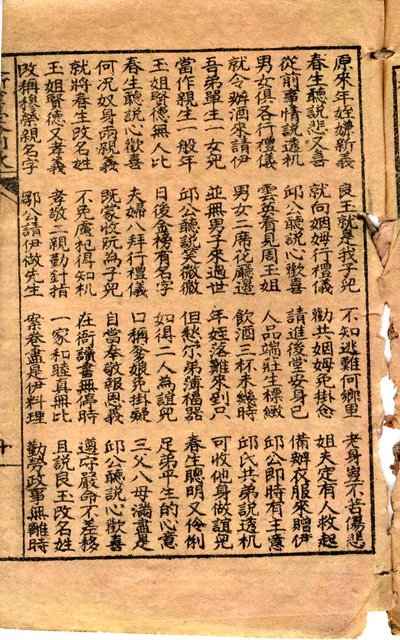 原來年姪嬸新義 良玉就是我子兒 不知逃難何鄉里 老身窮不苦傷悲
春生聽說悲又喜 就向姻姆行禮儀 勸共姻姆免掛念 姐夫定有人救起
從前事情說透机 邱公聽說心歡喜 請進後堂安身已 備辦衣服來贈伊
男女俱各行禮儀 雲英看見周玉姐 人品端莊生標緻 邱公即時有主意
就令辦酒來請伊 男女二席花廳邊 飲酒三杯未幾時 邱氏共弟說透机
吾弟單生一女兒 並無男子來過世 年姪落難來到只 可收他身做誼兒
當作親生一般年 邱公聽說笑微微 但愁尔弟薄福器 春生聰明又伶俐
玉姐賢德無人比 日後金榜有名字 如得二人為誼兒 足弟平生的心意
春生聽說心歡喜 夫婦八拜行禮儀 口稱爹娘免掛疑 三父八母滿盡是
何况奴身兩親義 既蒙收阮為子兒 自當奉敬報恩義 邱公聽說心歡喜
就將春生改名姓 不免盧杞得知机 在衙讀書無停時 遵守嚴命不差移
玉姐賢德又孝義 孝敬二親勤針指 一家和睦真無比 且說良玉改名姓
改稱穆榮親名字 鄒公請伊做先生 案卷盡是伊料理 勤勞政事無離時